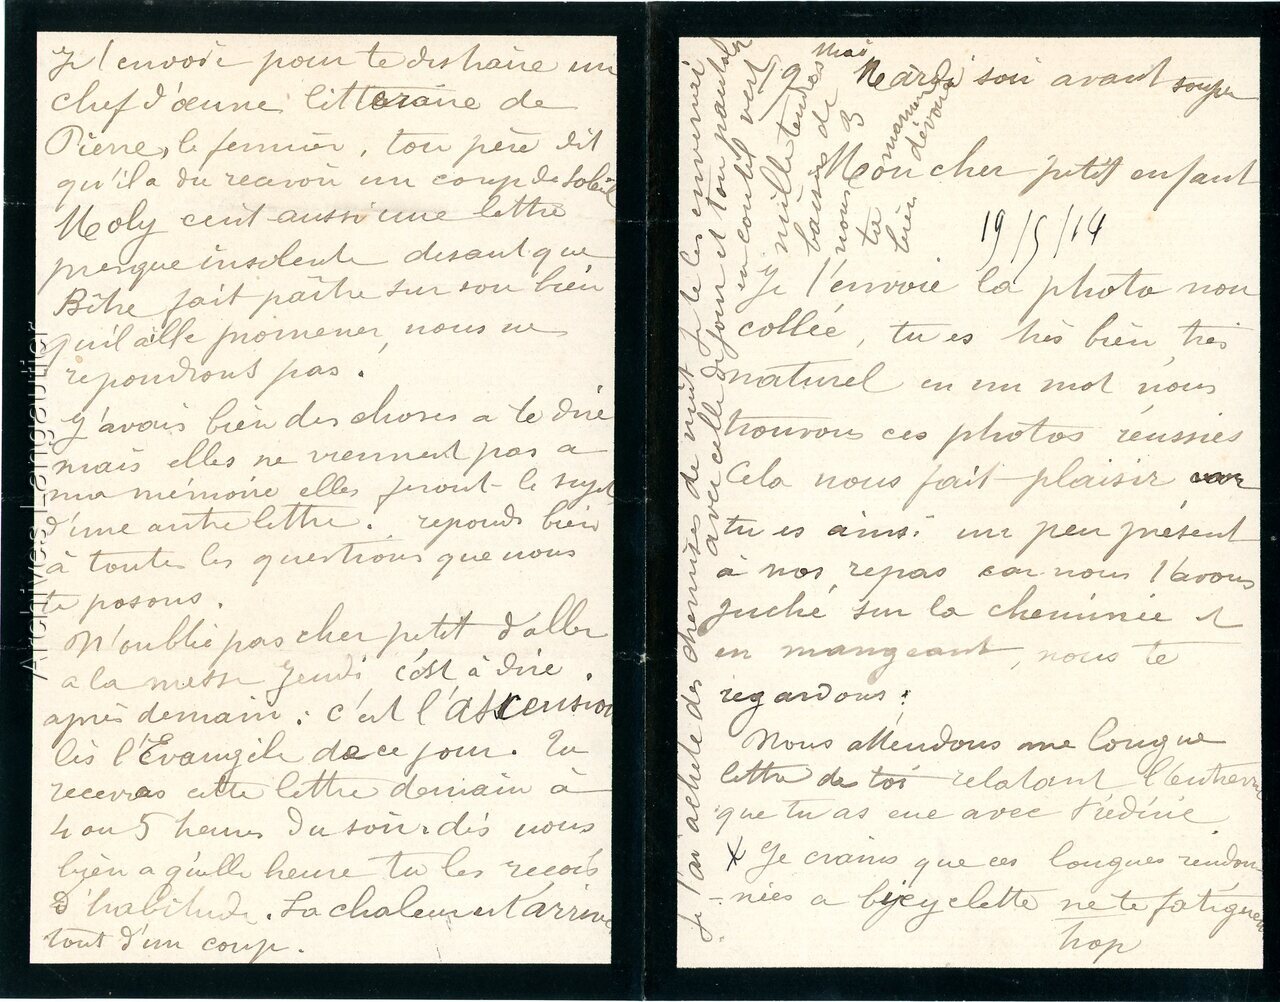 Mardi soir avant souper
Mon cher petit enfant
19/5/14
Je t'envoie la photo non
collée, tu es très bien, très
naturel en un mot nous
trouvons ces photos réussies
Cela nous fait plaisir car
tu es ainsi un peu présent
à nos repas car nous t'avons
juché sur la cheminée et
en mangeant, nous te
regardons.
Nous attendons une longue
lettre de toi relatant l'entrevue
que tu as eue avec Frédéric
x Je crains que ces longues randon-
-nées a bicyclette ne te fatiguent
trop
Je t'envoie pour te distraire un
chef d'œuvre littéraire de
Pierre, le fermier, ton père dit
qu'il a du recevoir un coup de soleil
Moly ecrit aussi une lettre
presque insolente disant que
Bître fait paître sur son bien
qu'il aille promener, nous ne
repondrons pas.
J'avais bien des choses a te dire
mais elles ne viennent pas a
ma mémoire elles feront le sujet
d'une autre lettre. reponds bien
à toutes les questions que nous
te posons.
N'oublie pas cher petit d'aller
a la messe Jeudi c'est à dire
après demain. c'est l'Ascension
lis l'Evangile de ce jour. Tu
recevras cette lettre demain à
4 ou 5 heures du soir. dis nous
bien a quelle heure tu les reçois
d'habitude. La chaleur est arrivée
tout d'un coup.
Je t'ai acheté des chemises de nuit Je te les enverrai
avec celle de jour et ton pantalon
en coutil vert
mille tendres
baisers de
nous 3
ta maman
bien dévouée
Archives Langautier